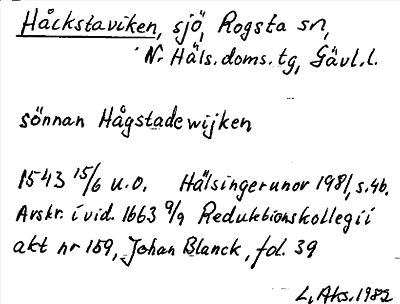 Håckstaviken, sjö, Rogsta sn,
N. Häls. doms. tg, Gävl. l.
sönnan Hågstadewijken
1543 15/6 u.o. Hälsingerunor 1981, s. 46.
Avskr. i vid. 1663 9/9 Reduktionskollegii
akt nr 159, Johan Blanck, fol. 39
L. Aks. 1982